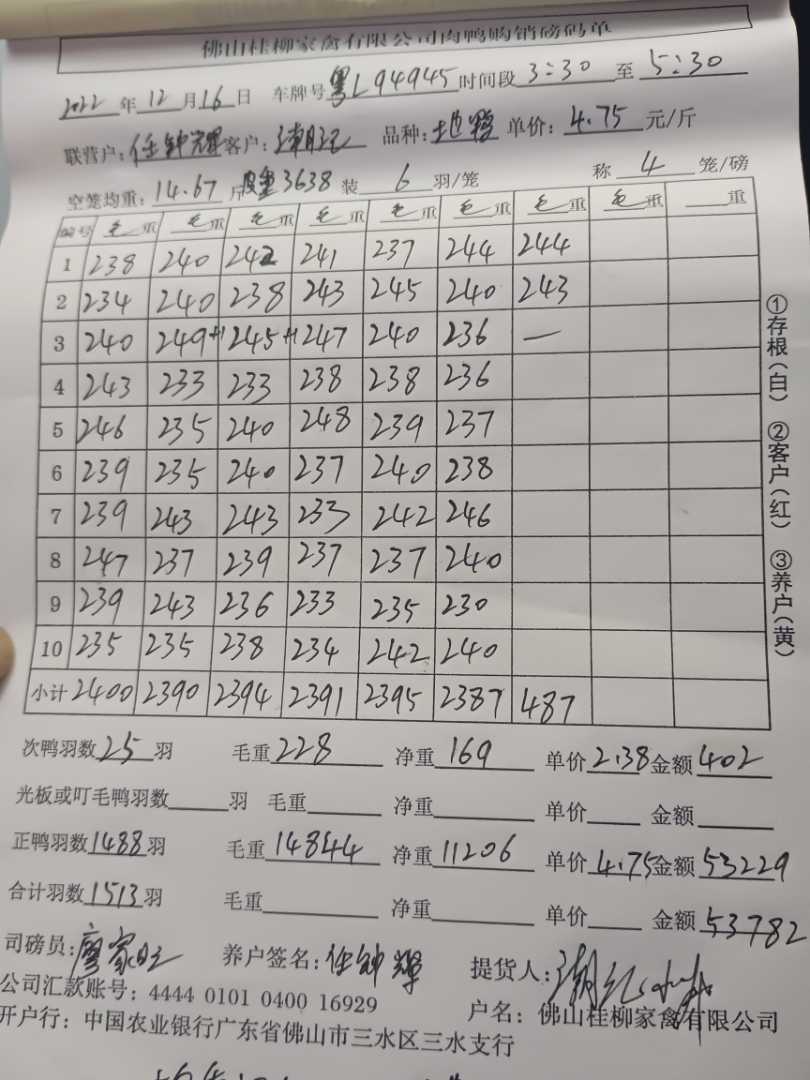 佛山桂柳家禽有限公司肉鸭购销磅码单
2022 年 12 月 16 日 车牌号 粤L94945 时间段 3:30 至 5:30
联营户: 任钟辉 客户: 品种: 单价: 4.75 元/斤
空笼均重: 14.67 斤 皮重3638 装 6 羽/笼 称 4 笼/磅
编号 毛重 毛重 毛重 毛重 毛重 毛重 毛重 毛重 重
1 238 240 242 241 237 244 244
2 234 240 238 243 245 240 243
3 240 249+1 245+1 247 240 236 —
4 243 233 233 238 238 236
5 246 235 240 248 239 237
6 239 235 240 237 240 238
7 239 243 243 233 242 246
8 247 237 239 237 237 240
9 239 243 236 233 235 230
10 235 235 238 234 242 240
小计 2400 2390 2394 2391 2395 2387 487
次鸭羽数 25 羽 毛重 228 净重 169 单价 2.38 金额 402
光板或叮毛鸭羽数 羽 毛重 净重 单价 金额
正鸭羽数 1488 羽 毛重 14844 净重 11206 单价 4.75 金额 53229
合计羽数 1513 羽 毛重 净重 单价 金额 53782
司磅员: 廖家旺 养户签名: 任钟辉 提货人:
公司汇款账号: 4444 0101 0400 16929 户名: 佛山桂柳家禽有限公司
开户行: 中国农业银行广东省佛山市三水区三水支行
①存根(白) ②客户(红) ③养户(黄)